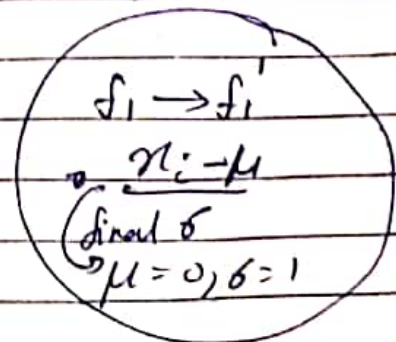 f₁ → f₁'
xᵢ - μ
final σ
μ = 0, σ = 1